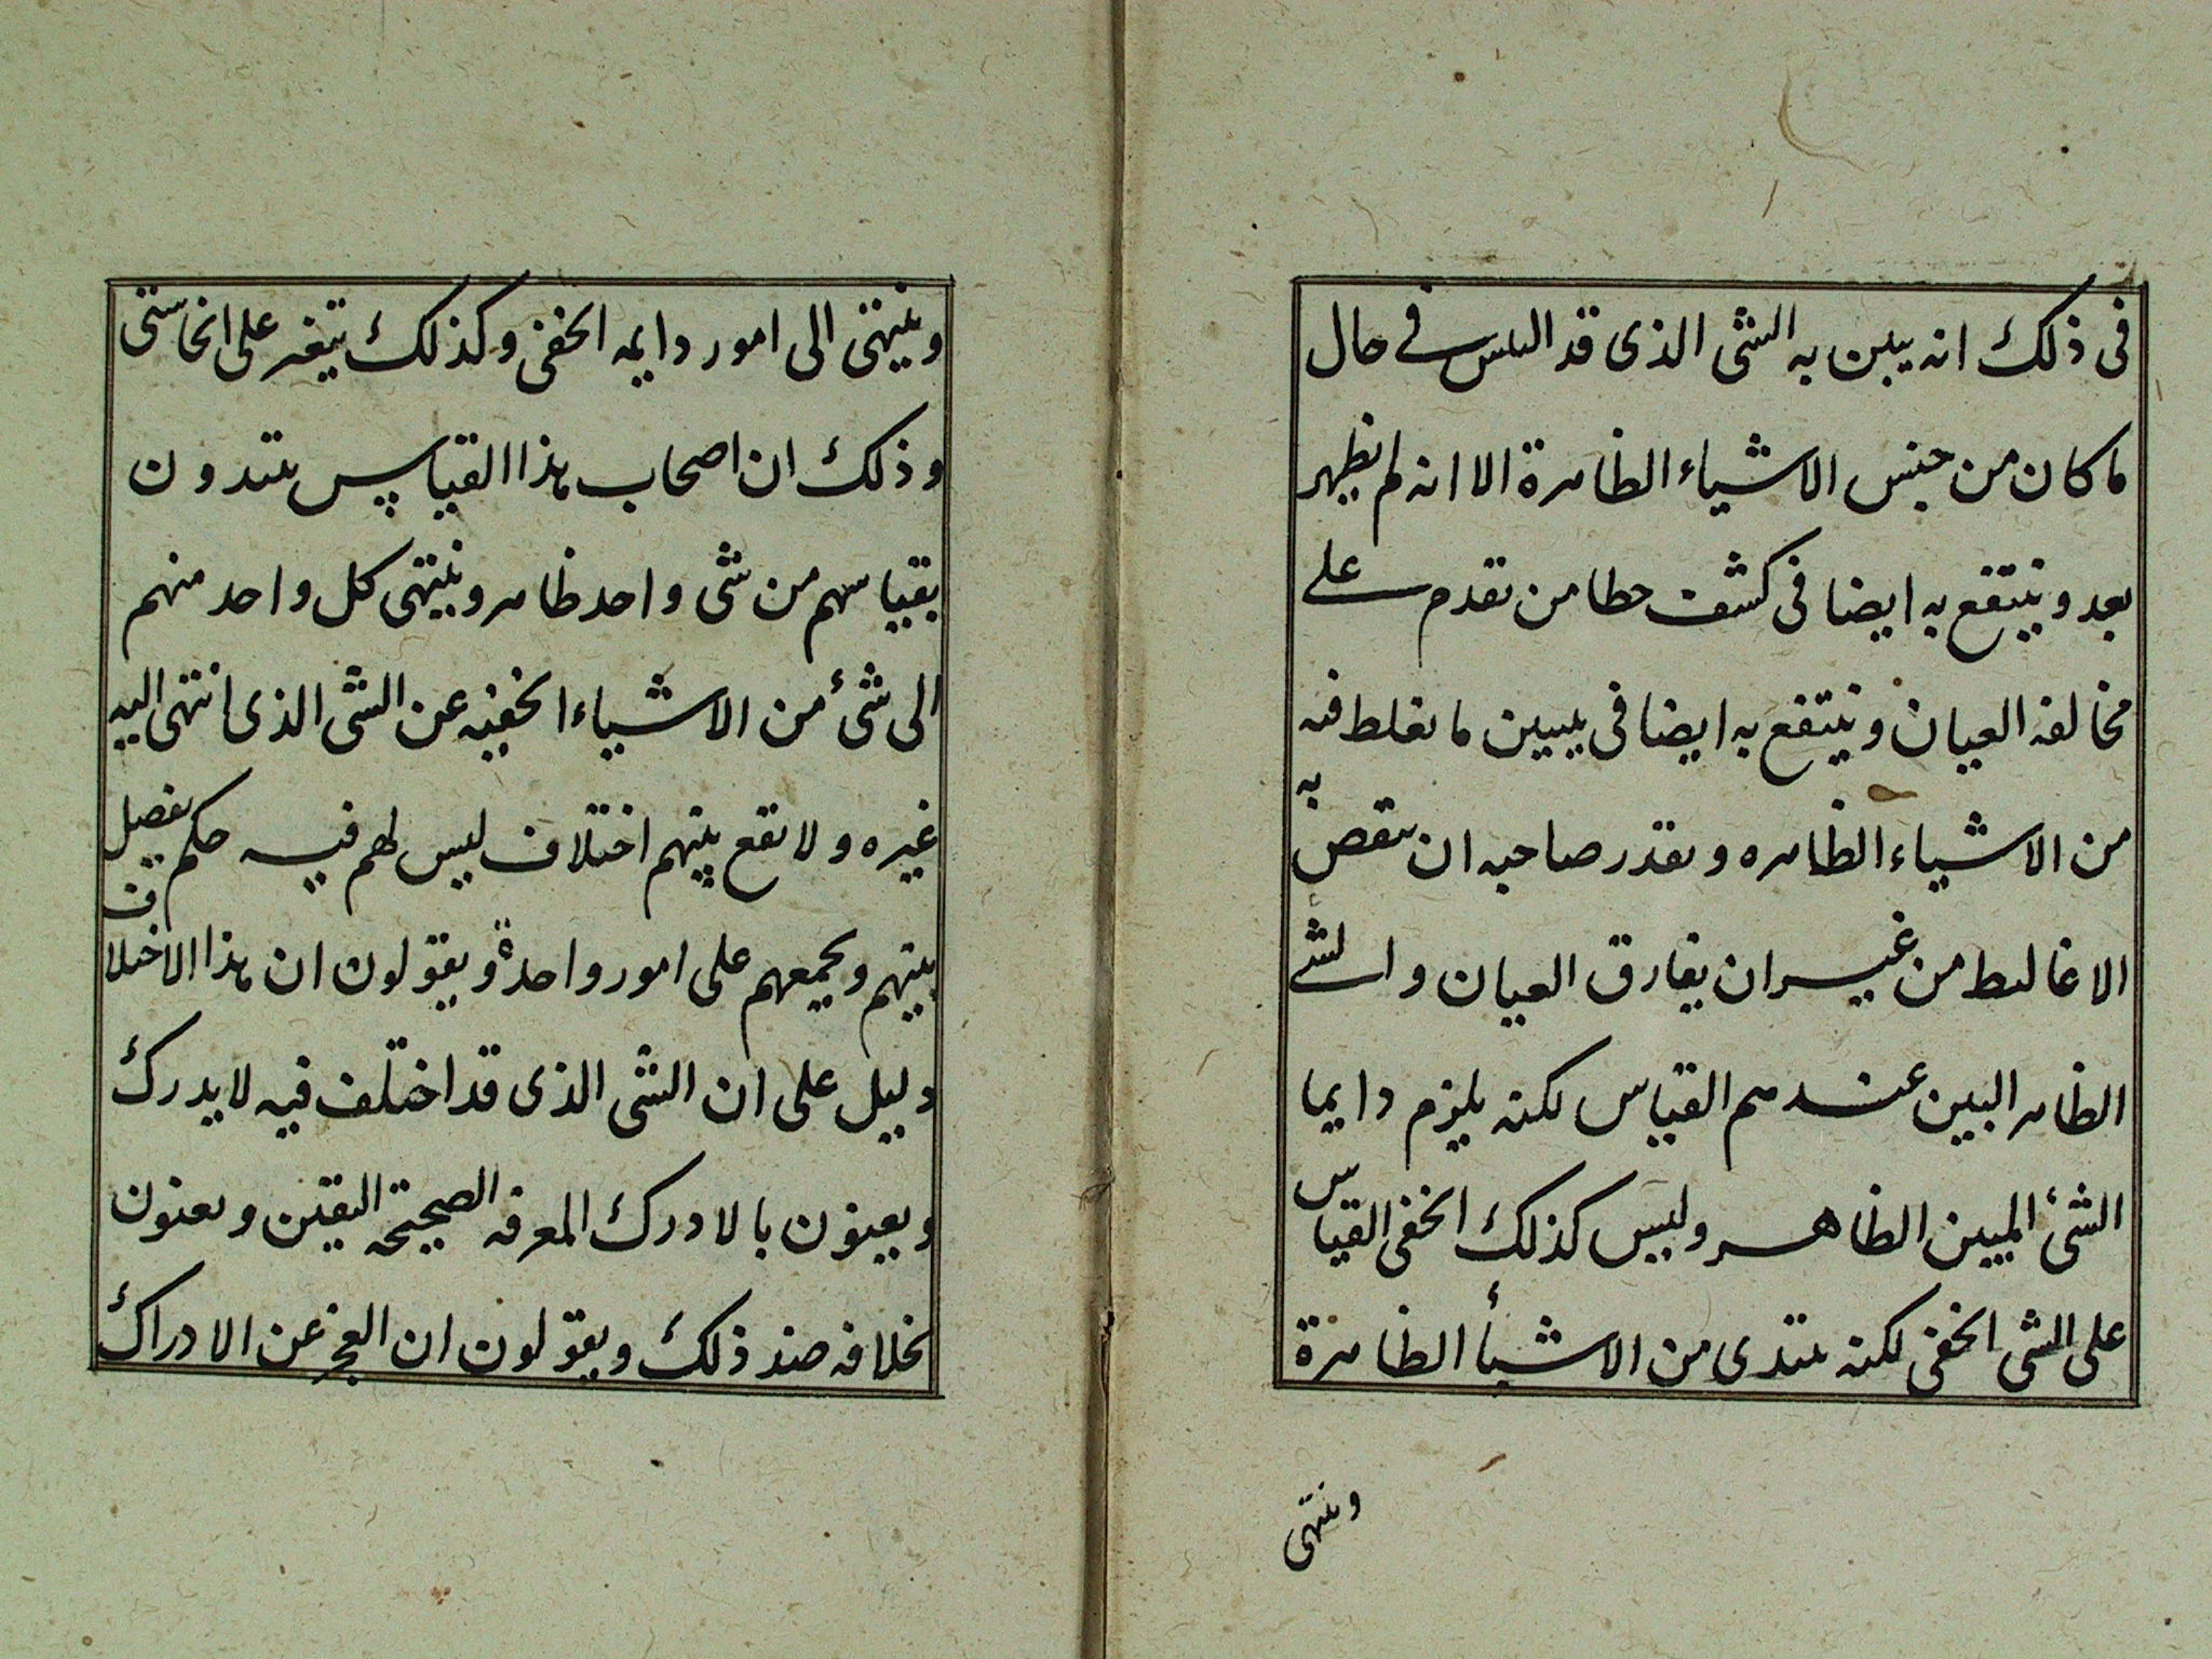 فى ذلك انه يبين به الشى الذى قد التبس فى حال
ما كان من جنس الاشياء الظاهرة الا انه لم يظهر
بعد وينتفع به ايضا فى كشف خطا من تقدم على
مخالفه العيان وينتفع به ايضا فى تبيين ما يغلط فيه
من الاشياء الظاهره ويقدر صاحبه ان ينقص به
الاغاليط من غير ان يفارق العيان والشى
الظاهر البين عندهم القياس لكنه يلزم دايما
الشئ المبين الظاهر وليس كذلك الخفى القياس
على الشى الخفى لكنه يبتدى من الاشيأ الظاهرة
وينتهى
وينتهى الى امور دايمه الخفى وكذلك يتغير على انحا شتى
وذلك ان اصحاب هذا القياس يبتدون
بقياسهم من شى واحد ظاهر وينتهى كل واحد منهم
الى شئ من الاشياء الخفيه عن الشى الذى انتهى اليه
غيره ولا يقع بينهم اختلاف ليس لهم فيه حكم يفصل
بينهم ويجمعهم على امور واحدة ويقولون ان هذا الاختلاف
دليل على ان الشى الذى قد اختلف فيه لا يدرك
ويعنون بالادرك المعرفه الصحيحة اليقين ويعنون
بخلافه ضد ذلك ويقولون ان العجز عن الادراك